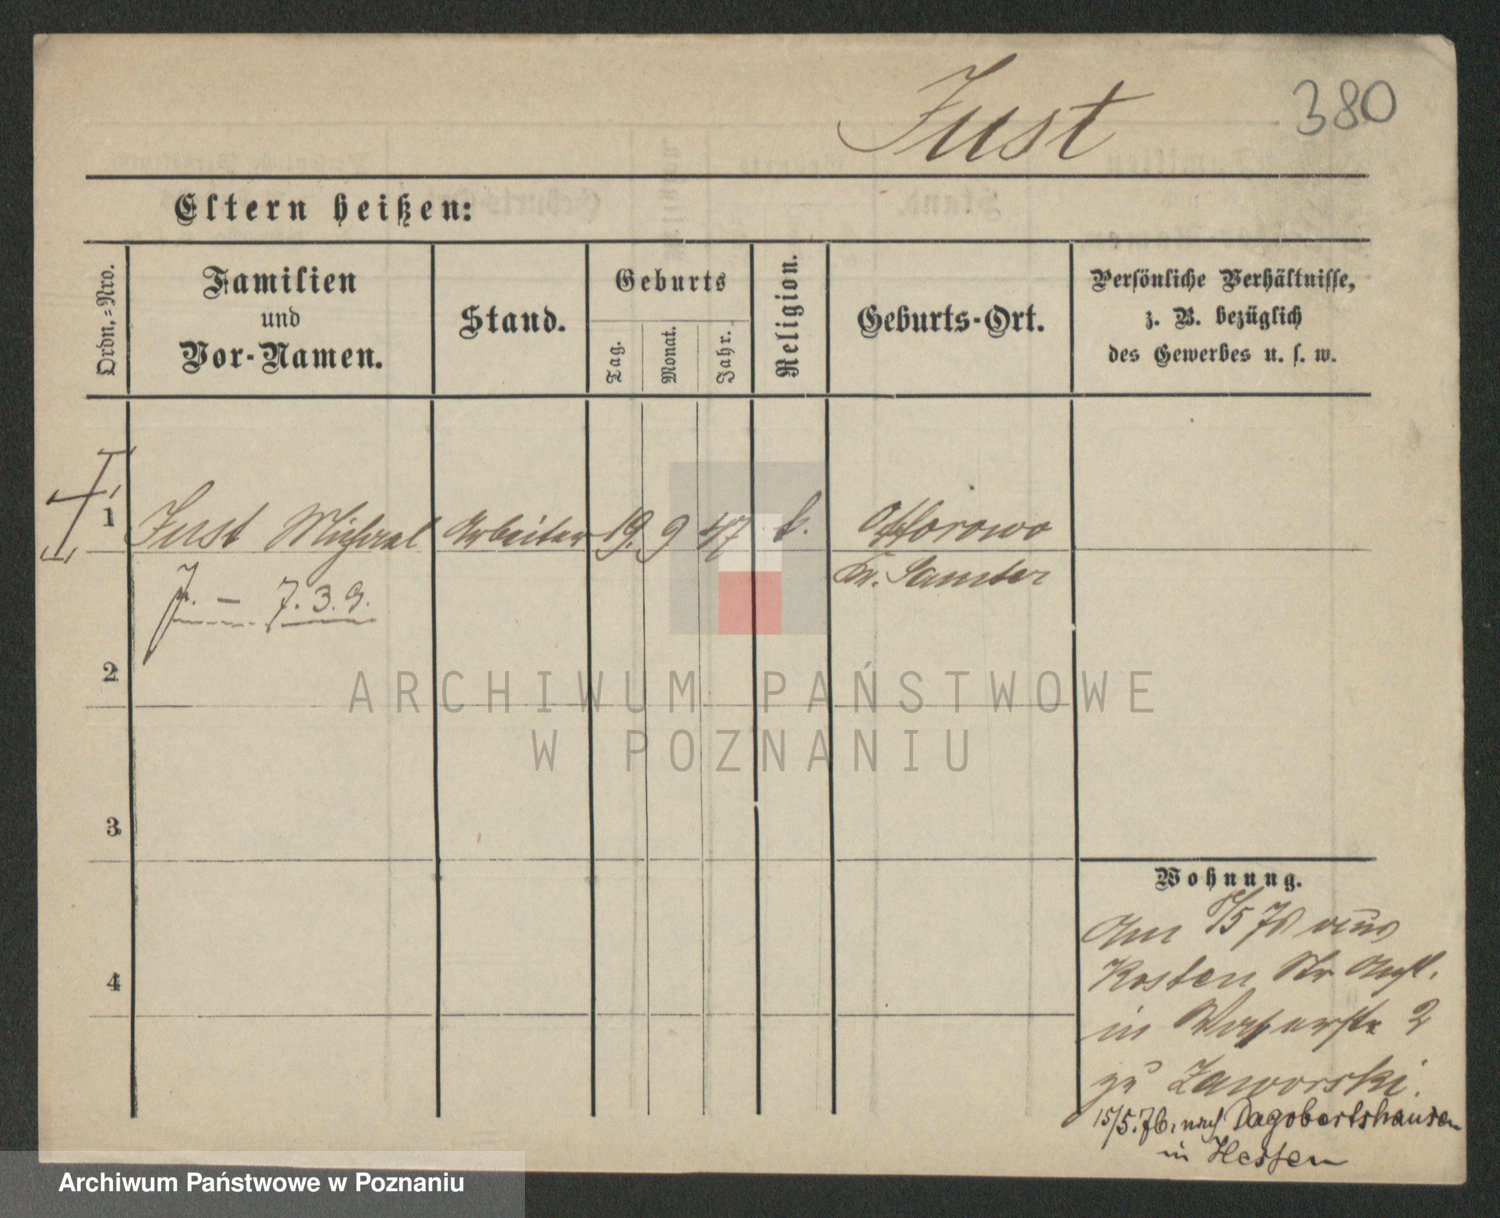 Just 380
Eltern heißen:
Ordn.-Nro.
Familien
und
Vor-Namen.
Stand.
Geburts
Tag.
Monat.
Jahr.
Religion.
Geburts-Ort.
Persönliche Verhältnisse,
z. B. bezüglich
des Gewerbes u. s. w.
1 Just Michael Arbeiter 19. 9 47 k. Ottorowo
Kr. Samter
J. — 7. 3. 9.
2
ARCHIWUM PAŃSTWOWE
W POZNANIU
3
Wohnung.
Am 5 aus
4 Kosten
in 2
zu Zaworski.
15/5.76. nach Dagobertshausen
in Hessen
Archiwum Państwowe w Poznaniu